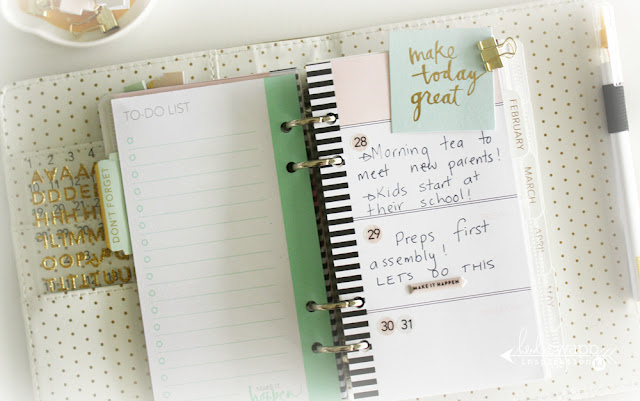 make
today
great
TO-DO LIST
DON'T FORGET
28
Morning tea to
meet new parents!
Kids start at
their school!
29
Preps first
assembly!
LETS DO THIS
MAKE IT HAPPEN
30 31
FEBRUARY
MARCH
APRIL
MAY
MAKE IT
happen
1 2 3 4